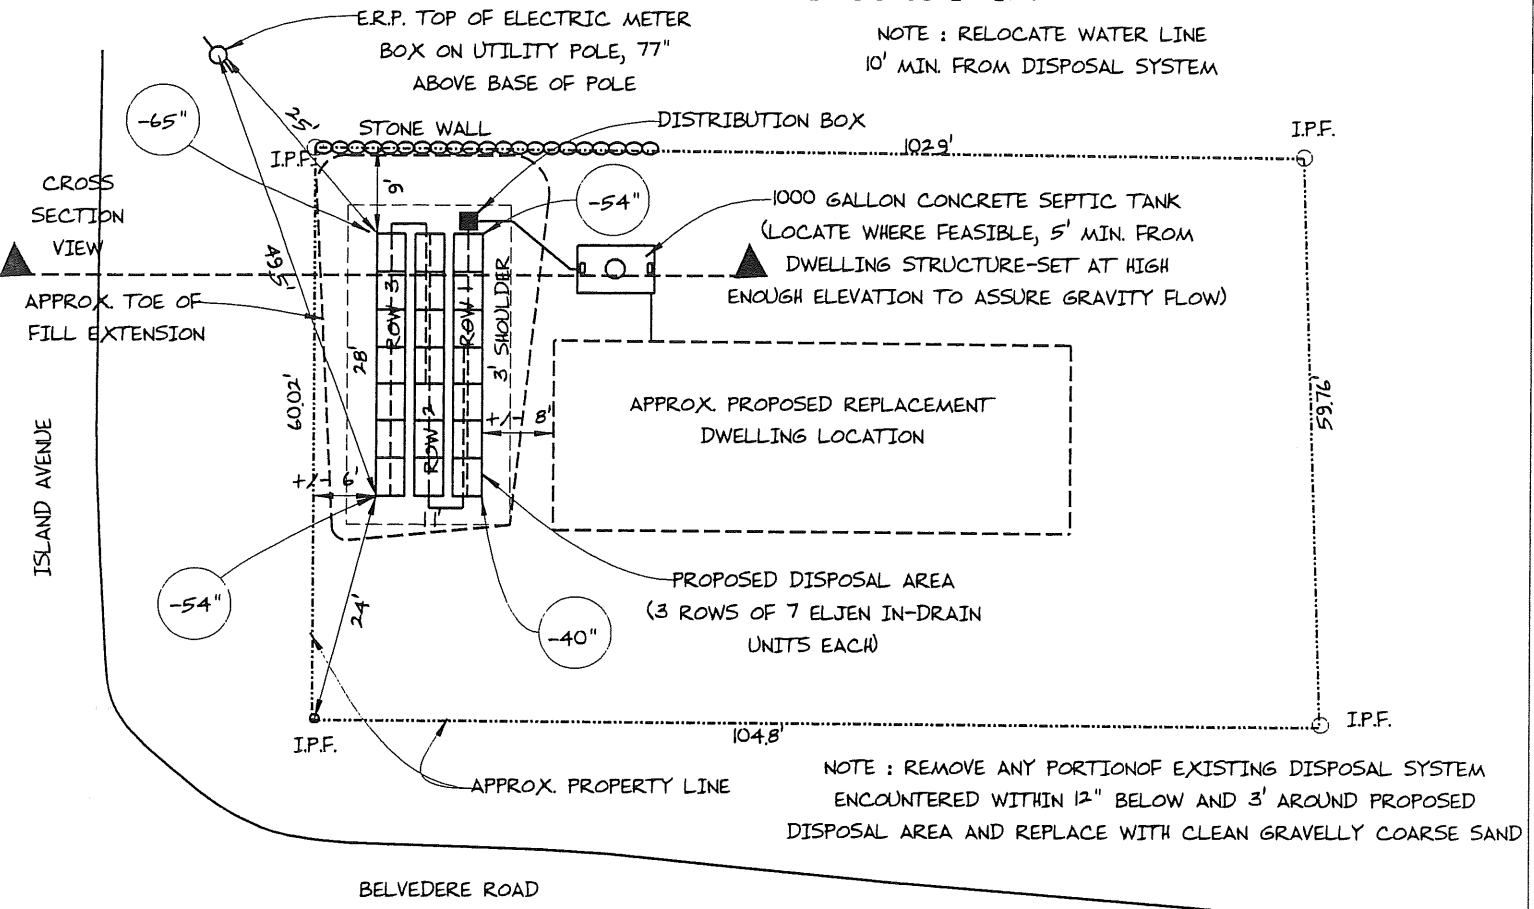 E.R.P. TOP OF ELECTRIC METER
BOX ON UTILITY POLE, 77"
ABOVE BASE OF POLE
NOTE : RELOCATE WATER LINE
10' MIN. FROM DISPOSAL SYSTEM
-65"
25'
STONE WALL
DISTRIBUTION BOX
I.P.F.
102.9'
I.P.F.
CROSS
SECTION
VIEW
9'
-54"
1000 GALLON CONCRETE SEPTIC TANK
(LOCATE WHERE FEASIBLE, 5' MIN. FROM
DWELLING STRUCTURE-SET AT HIGH
ENOUGH ELEVATION TO ASSURE GRAVITY FLOW)
49.5'
APPROX. TOE OF
FILL EXTENSION
ROW 3
ROW 1
3' SHOULDER
28'
60.02'
ROW 2
+/- 8'
APPROX. PROPOSED REPLACEMENT
DWELLING LOCATION
59.76'
ISLAND AVENUE
+/- 6'
1'
-54"
24'
PROPOSED DISPOSAL AREA
(3 ROWS OF 7 ELJEN IN-DRAIN
UNITS EACH)
-40"
I.P.F.
104.8'
I.P.F.
APPROX. PROPERTY LINE
NOTE : REMOVE ANY PORTIONOF EXISTING DISPOSAL SYSTEM
ENCOUNTERED WITHIN 12" BELOW AND 3' AROUND PROPOSED
DISPOSAL AREA AND REPLACE WITH CLEAN GRAVELLY COARSE SAND
BELVEDERE ROAD